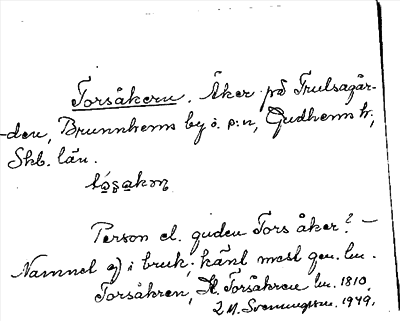 Torsåkern. Åker på Trulsagår-
den, Brunnhems by o. sn, Gudhems hd,
Skb. län.
Person el. guden Tors åker? –
Namnet ej i bruk; känt mest gm. lm.
Torsåkren, St. Torsåkren lm. 1810.
Z M. Svenungsson. 1949.